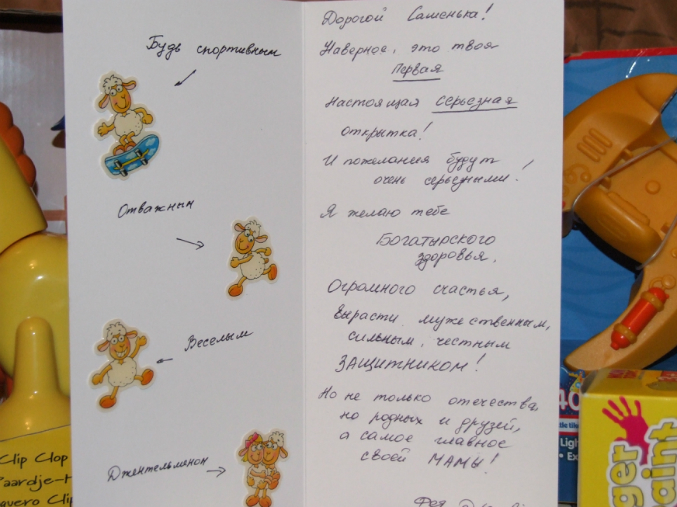 Будь спортивным
Отважным
Веселым
Джентельменом
Дорогой Саменька!
Наверное, это твоя
первая
настоящая серьезная
открытка!
И пожелания будут
очень серьезными!
Я желаю тебе
Богатырского
здоровья,
Огромного счастья,
Вырасти мужественным,
сильным, честным
ЗАЩИТНИКОМ!
Но не только отечества,
но родных и друзей,
а самое главное
своей МАМЫ!
Фея
Clip Clop
Paardje-
avero Clip
40
Ligh
• Ex
ger
aint